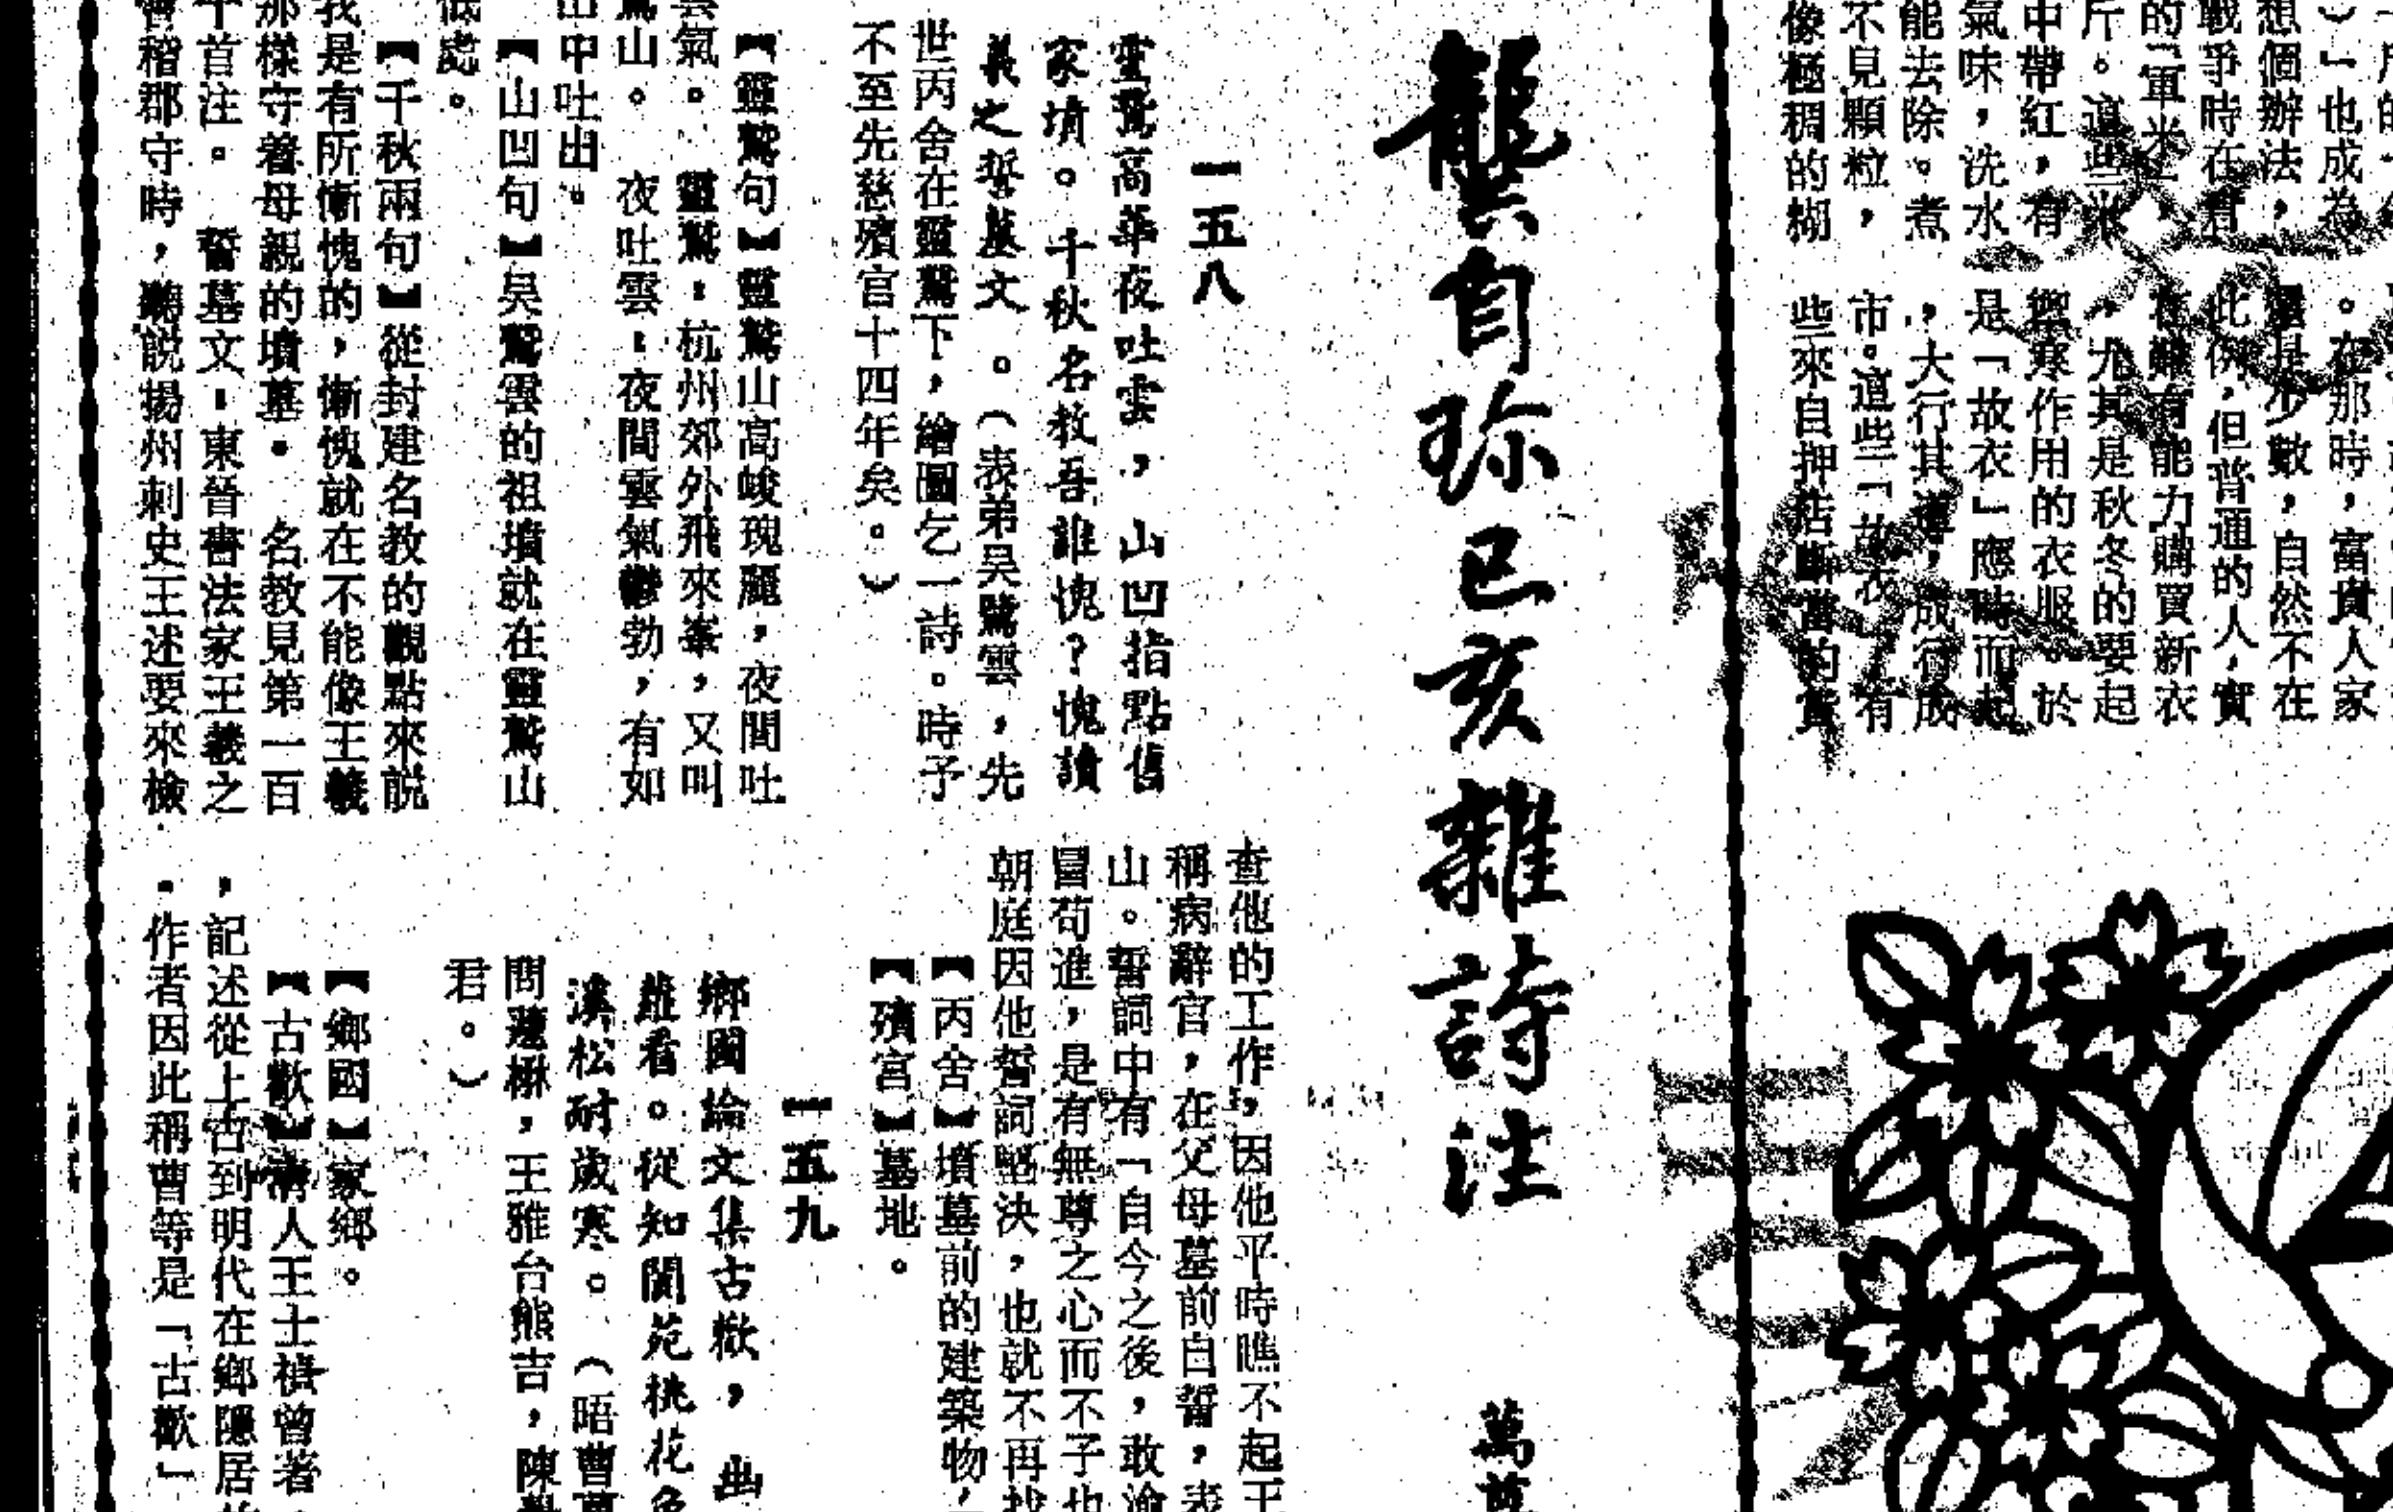 ）」也成為
想個辦法，
戰爭時在
的「軍米」，
斤。這些米
中帶紅，有
氣味，洗水
能去除。煮
不見顆粒，
像極稠的糊
。在那時，富貴人家
還是少數，自然不在
此例，但普通的人，實
在難有能力購買新衣
，尤其是秋冬的要起
禦寒作用的衣服。於
是「故衣」應時而起
，大行其道，成行成
市。這些「故衣」有
些來自押店斷當的貨
龔自珍己亥雜詩注
萬
一五八
靈鷲高華夜吐雲，山凹指點舊
家墳。千秋名教吾誰愧？愧讀
羲之誓墓文。（表弟吳鷺雲，先
世丙舍在靈鷲下，繪圖乞一詩。時予
不至先慈殯宮十四年矣。）
【靈鷲句】靈鷲山高峻瑰麗，夜間吐
雲氣。靈鷲：杭州郊外飛來峯，又叫
鷲山。夜吐雲：夜間雲氣鬱勃，有如
山中吐出。
【山凹句】吳鷺雲的祖墳就在靈鷲山
低處。
【千秋兩句】從封建名教的觀點來說
我是有所慚愧的，慚愧就在不能像王羲
那樣守着母親的墳墓。名教見第一百
十首注。誓墓文：東晉書法家王羲之
會稽郡守時，聽說揚州刺史王述要來檢
查他的工作，因他平時瞧不起王
稱病辭官，在父母墓前自誓，表
山。誓詞中有「自今之後，敢渝
冒苟進，是有無尊之心而不子也
朝庭因他誓詞堅決，也就不再找
【丙舍】墳墓前的建築物，
【殯宮】墓地。
一五九
鄉國論文集古歡，幽
蘿看。從知閬苑桃花色
溪松耐歲寒。（晤曹葛
問蘧楙，王雅台熊吉，陳
君。）
【鄉國】家鄉。
【古歡】清人王士禎曾著
，記述從上古到明代在鄉隱居
。作者因此稱曹等是「古歡」